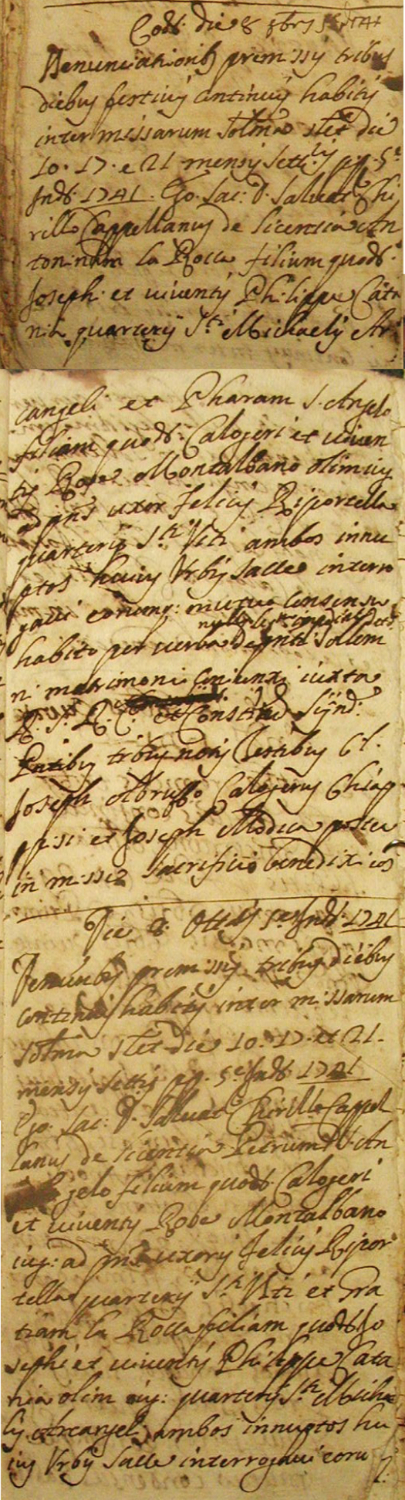 Eod: die 8 8bris 5e Ind: 1741
Denunciationib; premissis tribus
diebus festivis continuis habitis
inter missarum solmia slet die
10. 17. e 21 mensis Settris pp. 5e
Ind: 1741. Ego Sac: D. Salvat: Chi
rillo Cappellanus de licentia An
toninum la Rocca filium quod:
Joseph: et viventis Philippe Cata
nia quarterij Sti Michaelis Ar
cangeli et Pharam S. Angelo
filiam quod: Calogeri et viven
tis Rose Montalbano olim iug:
ad pns uxor Felicis Riportella
quarterij Sti Viti ambos innu
ptos huius Urbis Salle interro
gavi eorumq: mutuo consensu
habito per verba de pnti solem
ni matrimonio coniunxi iuxta
R. S. R. E. et Constit: Sijnd:
Pntibus tribus notis testibus Cl.
Joseph Abruzzo Calogerus Chiap
pisi et Joseph Modica postea
in missae sacrificio benedixi eos
Die 8 Ottris 5e Ind: 1741
Denunc: premissis tribus diebus
continuis habitis inter missarum
solmia slet die 10. 17. et 21.
mensis Settris pp. 5e Ind: 1741
Ego Sac: D. Salvat: Chirillo Cappel
lanus de licentia Petrum S. An
gelo filium quod: Calogeri
et viventis Rose Montalbano
iug: ad pns uxoris Felicis Ripor
tella quarterij Sti Viti et Gra
tiam la Rocca filiam quod: Jo
sephi et viventis Philippe Cata
nia olim iug: quarterij Sti Micha
lis Arcangeli ambos innuptos hu
ius Urbis Salle interrogavi eoru
q: